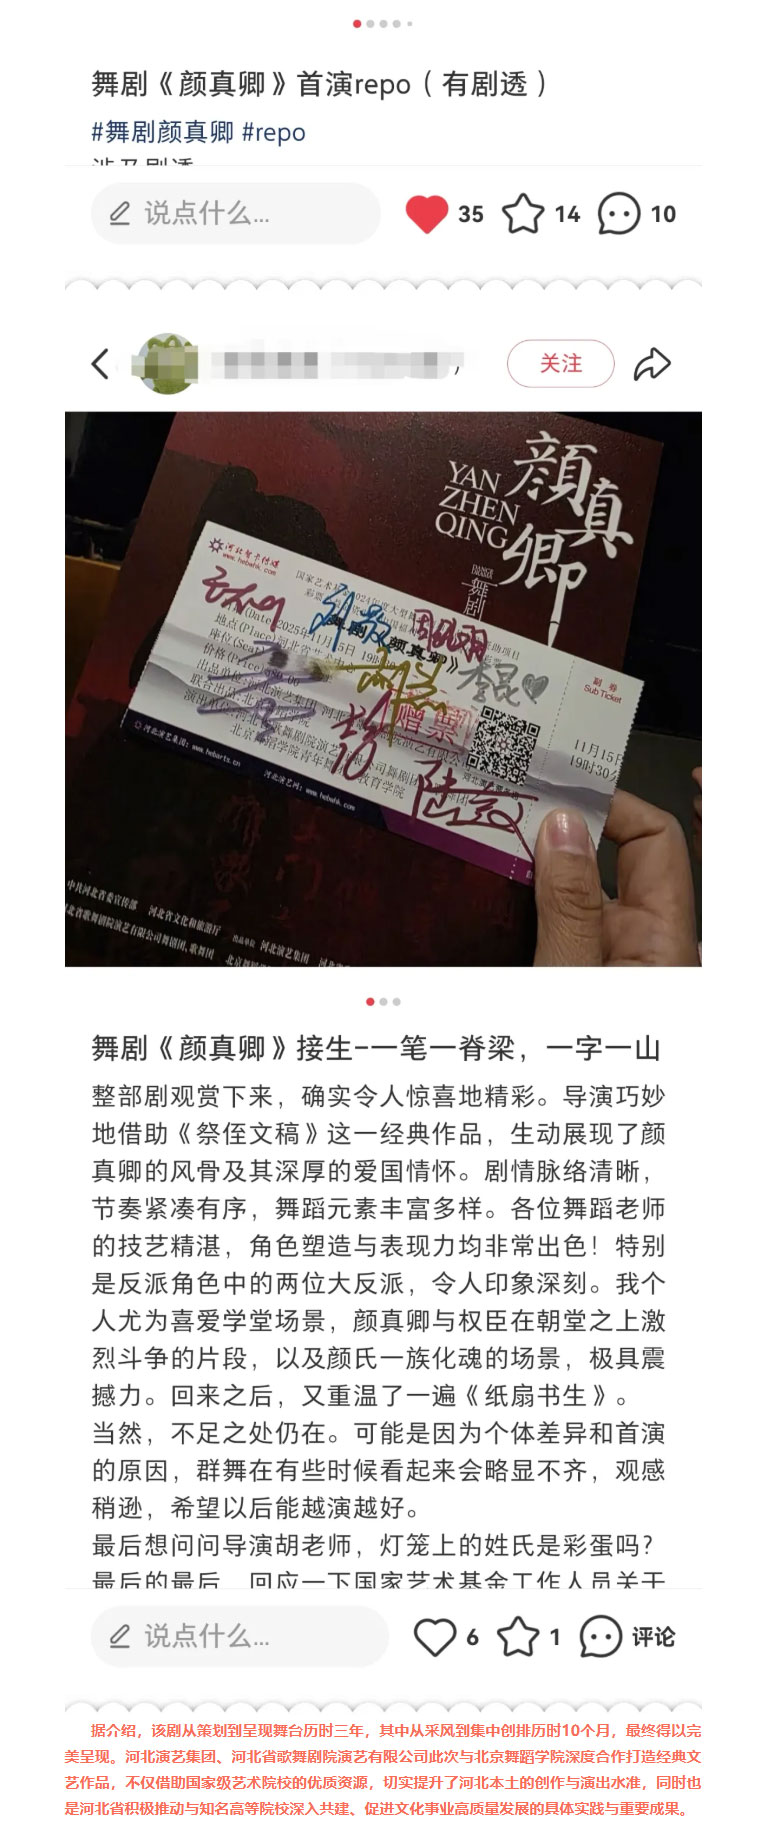 舞剧《颜真卿》首演repo（有剧透）
#舞剧颜真卿 #repo
说点什么...
35
14
10
关注
颜真卿
YAN
ZHEN
QING
舞剧
河北智卡传媒
www.hebehk.com
《颜真卿》
赠票
副 券
Sub Ticket
11月15日
19时30分
河北演艺集团：www.hebarts.cn
河北演艺网：www.hebehk.com
中共河北省委宣传部 河北省文化和旅游厅 出品单位 河北演艺集团
舞剧《颜真卿》接生-一笔一脊梁，一字一山
整部剧观赏下来，确实令人惊喜地精彩。导演巧妙
地借助《祭侄文稿》这一经典作品，生动展现了颜
真卿的风骨及其深厚的爱国情怀。剧情脉络清晰，
节奏紧凑有序，舞蹈元素丰富多样。各位舞蹈老师
的技艺精湛，角色塑造与表现力均非常出色！特别
是反派角色中的两位大反派，令人印象深刻。我个
人尤为喜爱学堂场景，颜真卿与权臣在朝堂之上激
烈斗争的片段，以及颜氏一族化魂的场景，极具震
撼力。回来之后，又重温了一遍《纸扇书生》。
当然，不足之处仍在。可能是因为个体差异和首演
的原因，群舞在有些时候看起来会略显不齐，观感
稍逊，希望以后能越演越好。
最后想问问导演胡老师，灯笼上的姓氏是彩蛋吗？
最后的最后，回应一下国家艺术基金工作人员关于
说点什么...
6
1
评论
据介绍，该剧从策划到呈现舞台历时三年，其中从采风到集中创排历时10个月，最终得以完
美呈现。河北演艺集团、河北省歌舞剧院演艺有限公司此次与北京舞蹈学院深度合作打造经典文
艺作品，不仅借助国家级艺术院校的优质资源，切实提升了河北本土的创作与演出水准，同时也
是河北省积极推动与知名高等院校深入共建、促进文化事业高质量发展的具体实践与重要成果。